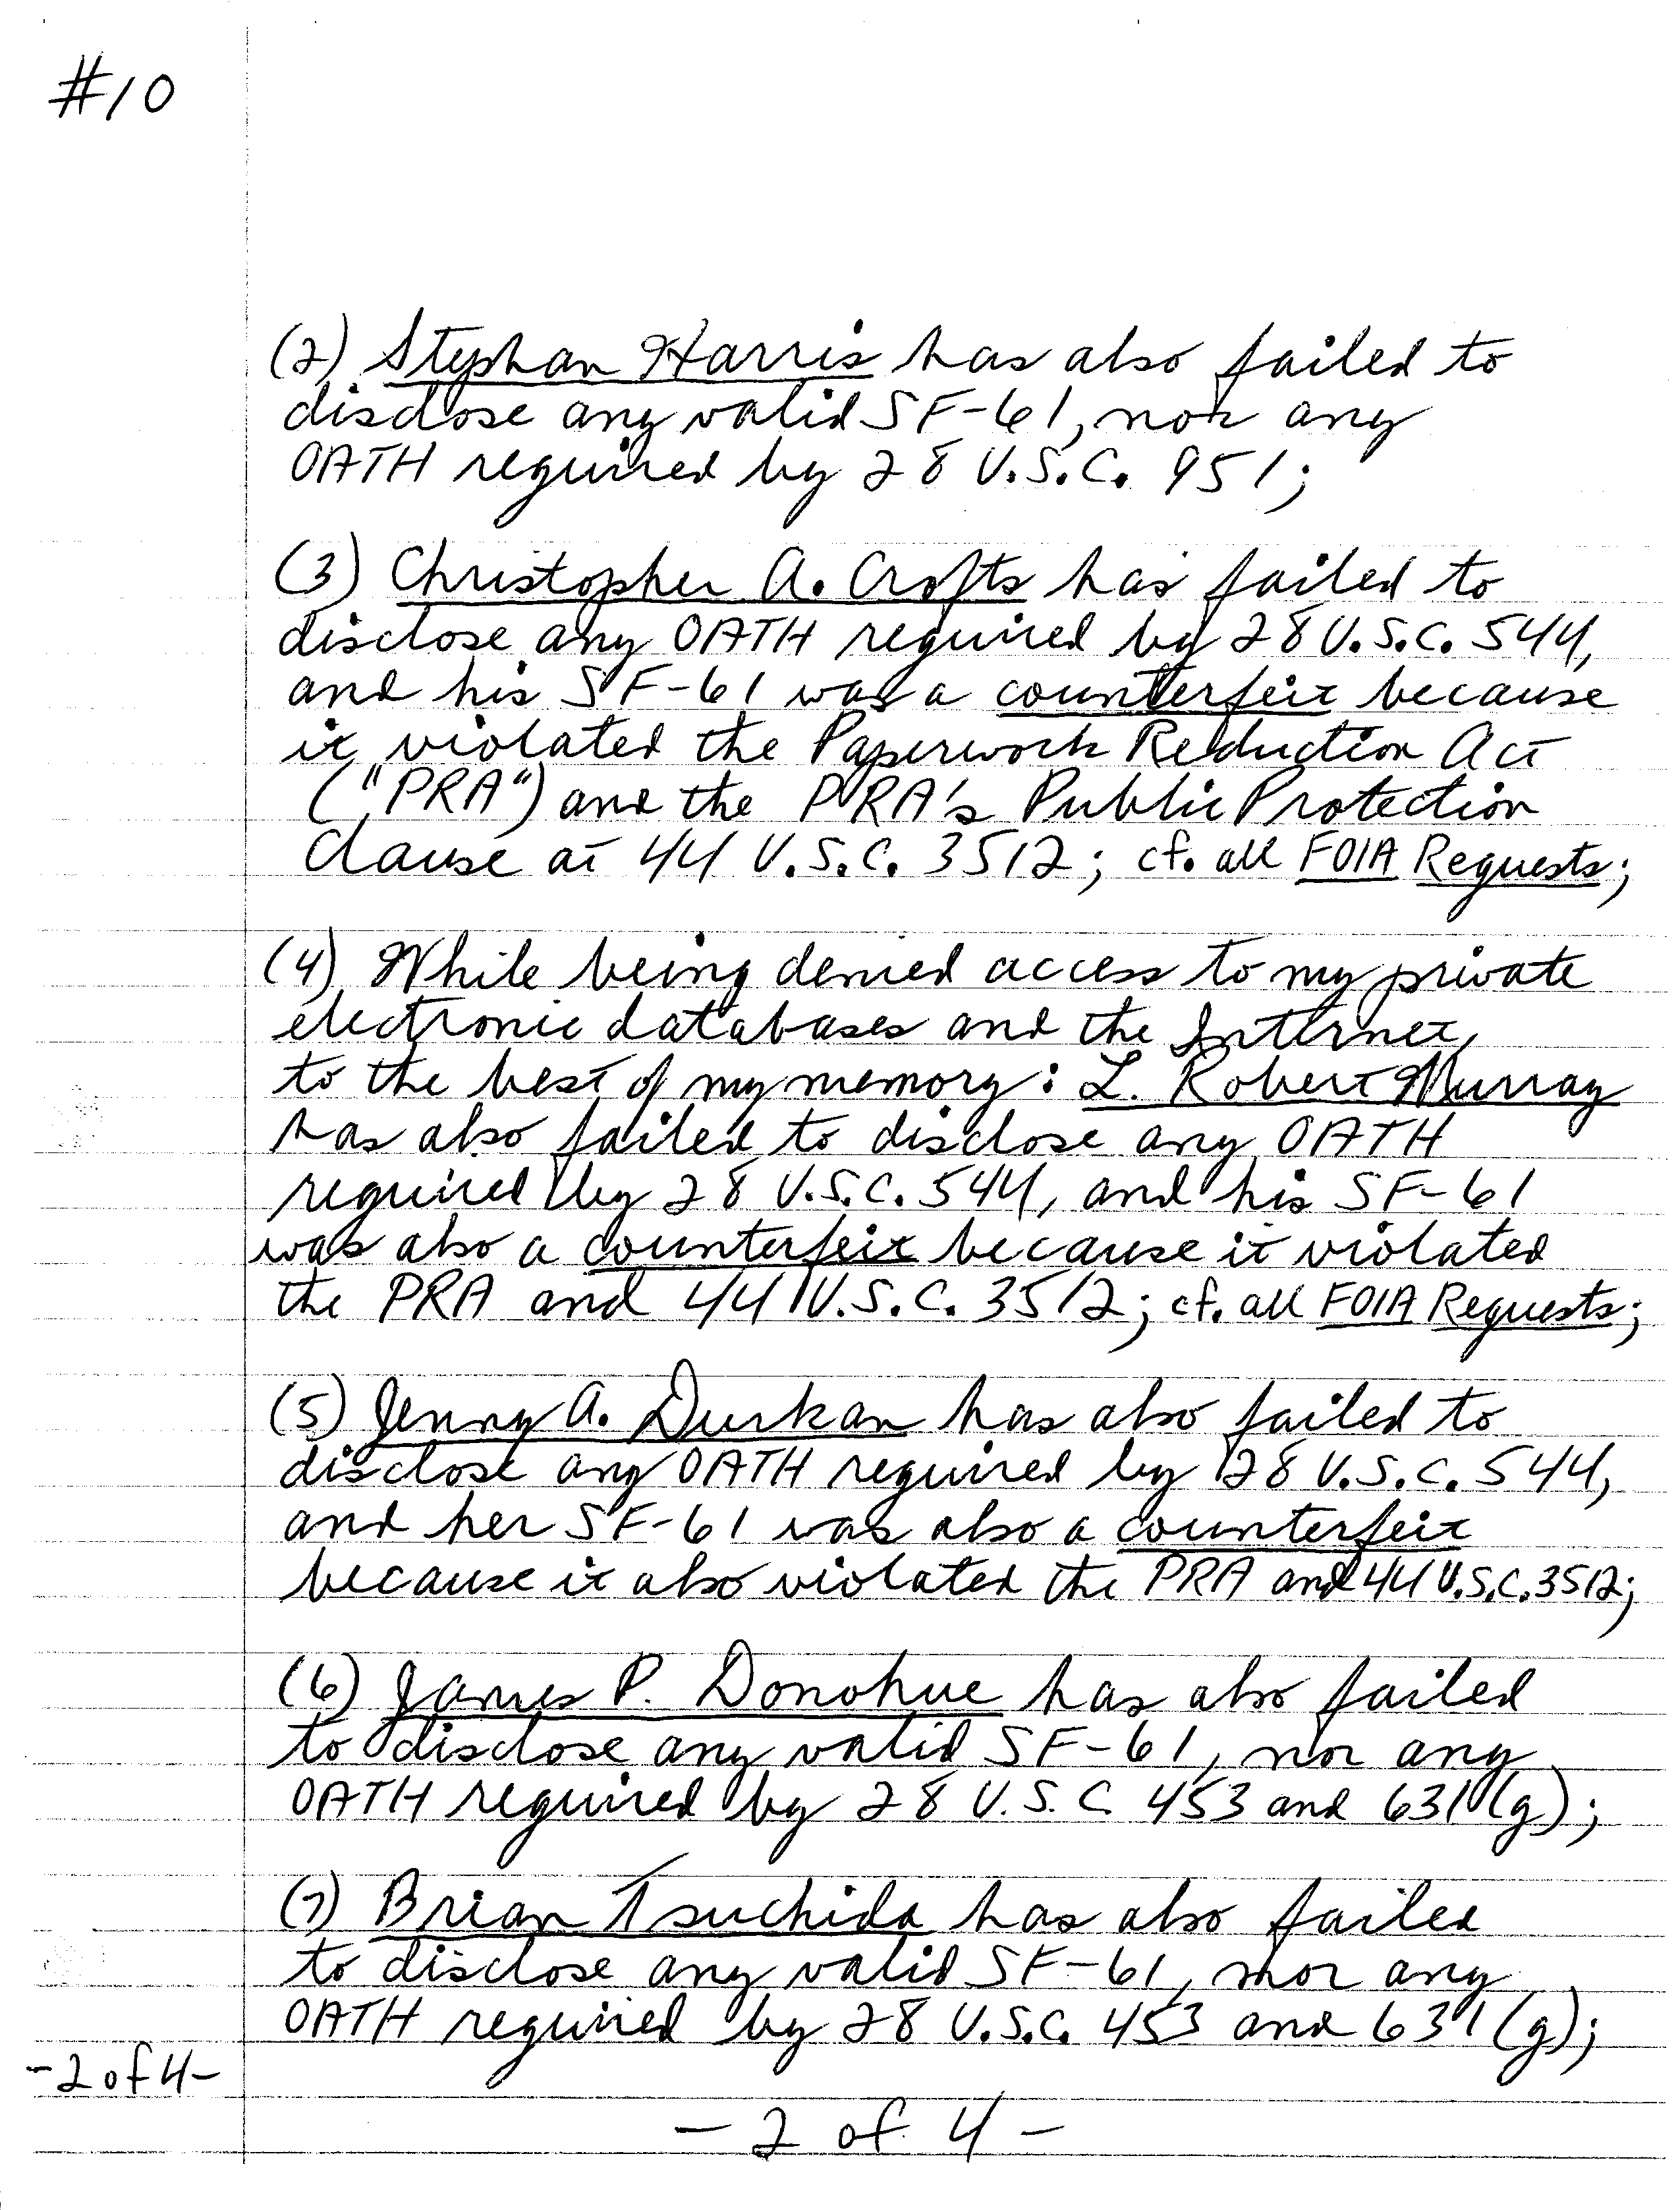 #10
(2) Stephan Harris has also failed to
disclose any valid SF-61, nor any
OATH required by 28 U.S.C. 951;
(3) Christopher A. Crofts has failed to
disclose any OATH required by 28 U.S.C. 544,
and his SF-61 was a counterfeit because
it violated the Paperwork Reduction Act
("PRA") and the PRA's Public Protection
Clause at 44 U.S.C. 3512; cf. all FOIA Requests;
(4) While being denied access to my private
electronic databases and the Internet,
to the best of my memory: L. Robert Murray
has also failed to disclose any OATH
required by 28 U.S.C. 544, and his SF-61
was also a counterfeit because it violated
the PRA and 44 U.S.C. 3512; cf. all FOIA Requests;
(5) Jenny A. Durkan has also failed to
disclose any OATH required by 28 U.S.C. 544,
and her SF-61 was also a counterfeit
because it also violated the PRA and 44 U.S.C. 3512;
(6) James P. Donohue has also failed
to disclose any valid SF-61, nor any
OATH required by 28 U.S.C. 453 and 631(g);
(7) Brian Tsuchida has also failed
to disclose any valid SF-61, nor any
OATH required by 28 U.S.C. 453 and 631(g);
-2 of 4-
- 2 of 4 -